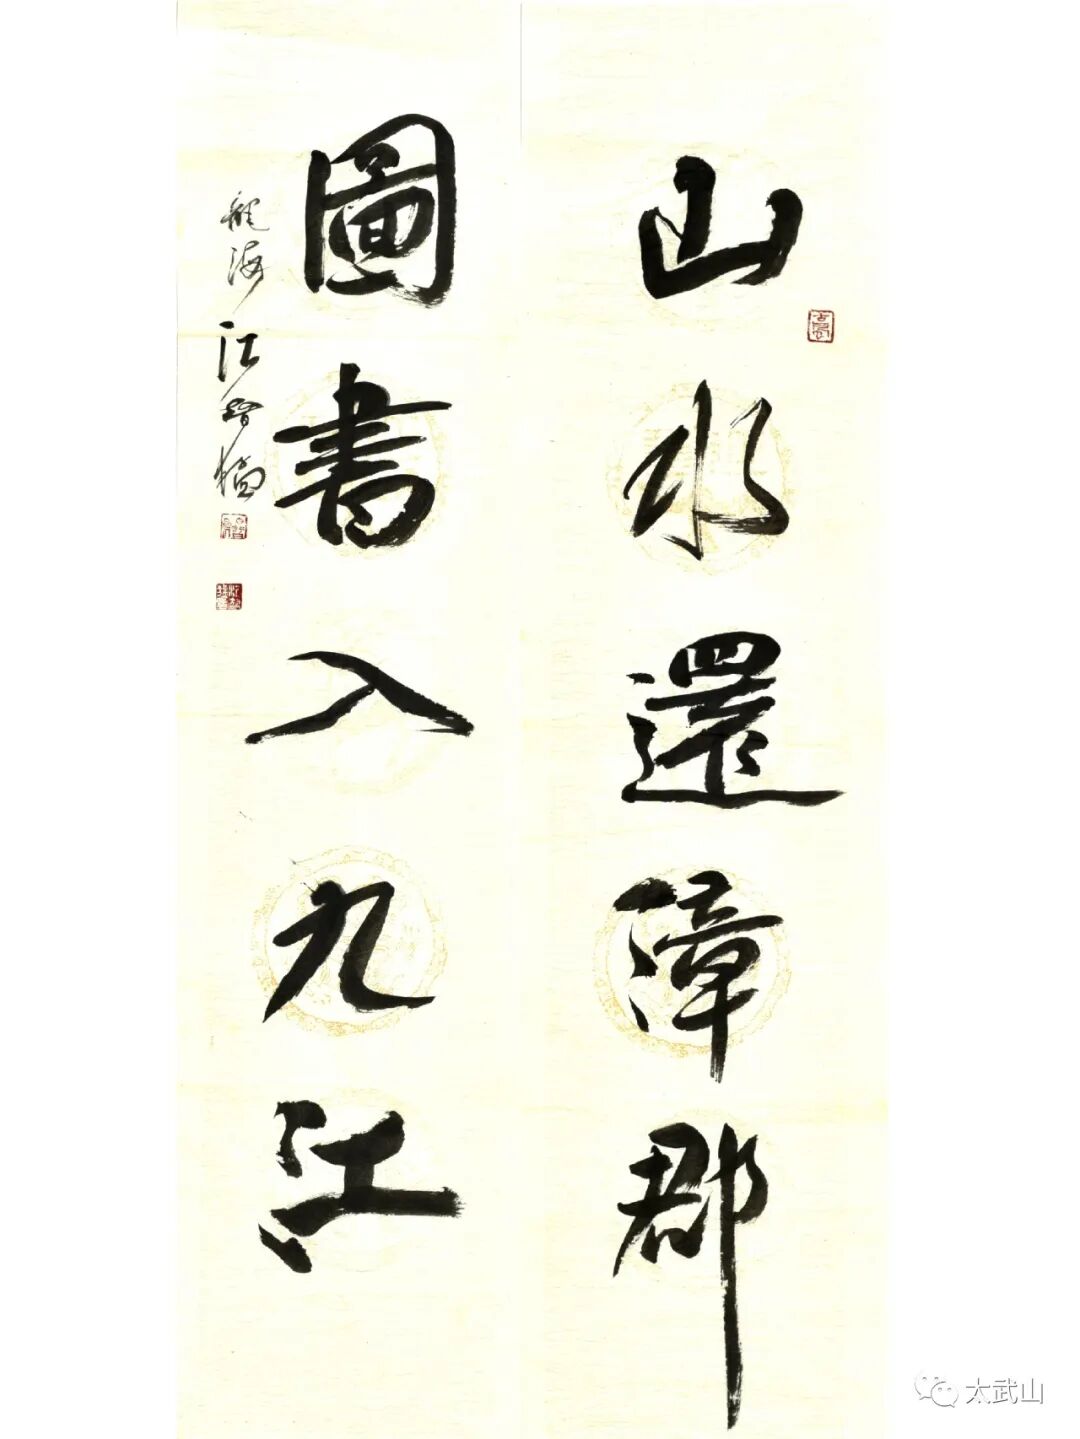 山水還漳郡
圖書入九江
龍海江
太武山